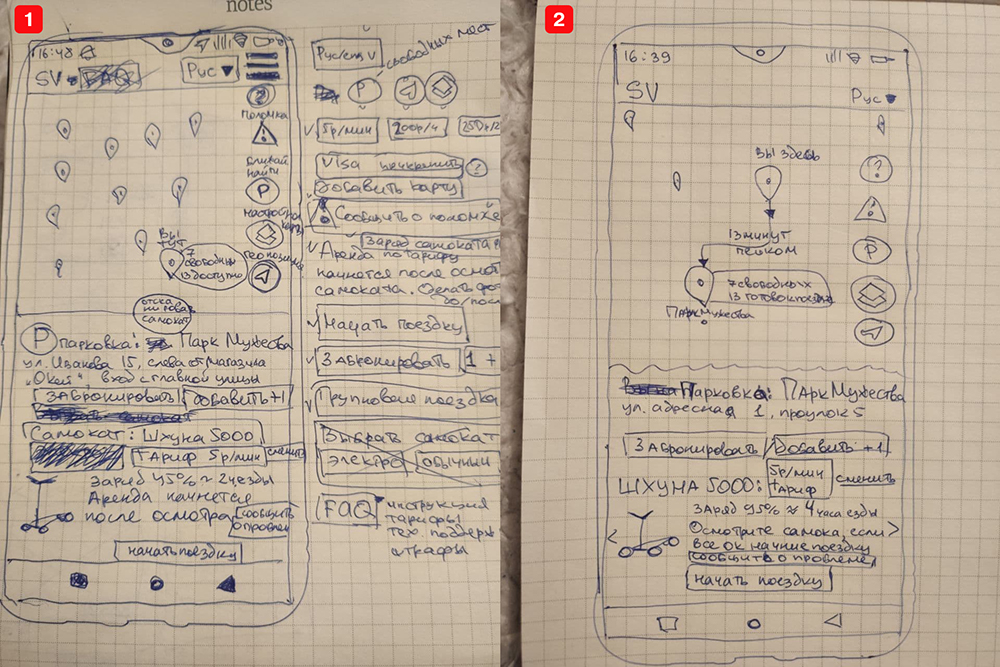 notes
1
16:48
SV FAQ
Рус
Поломка
ближай
найти
P
настройка
карты
геопозиция
ВЫ
ТУТ
7
свободных
13 доступно
отска
нировав
самокат
P парковка: Парк Мужества
ул. Иванова 15, слева от магазина
"Окей", вход с главной улицы
ЗАБРОНИРОВАТЬ Добавить +1
Самокат: Шхуна 5000
+ Тариф 5р/мин сменить
Заряд 95% ≈ 2 часа езды
Аренда начнется
после осмотра сообщить
о проблем
начать поездку
Рус/eng v
свободных мест
P
5р/мин 200р/ч
Visa ?
Добавить карту
Сообщить о поломке
Заряд самоката
Аренда по тарифу
начнется после осмот
самоката. Сделать фо
до/посл
Начать поездку
ЗАБРОНИРОВАТЬ 1 +
Групповые поездка
Выбрать самокат
Электро обычный
FAQ инструкция
тарифы
тех. поддерж
штрафы
2
16:39
SV
Рус
ВЫ здесь
?
13 минут
пешком
P
7 свободных
13 готовок
ПАрк Мужества
Парковка: ПАрк Мужества
ул. адресная 1, проулок 5
ЗАБРОНИРОВАТЬ Добавить +1
ШХУНА 5000: 5р/мин
+Тариф сменить
Заряд 95% ≈ 4 часа езды
Осмотрите самока, если
все ок начние поездку
сообщить о проблеме
начать поездку